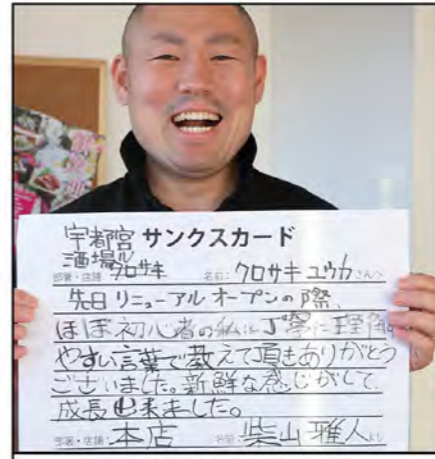 宇都宮 サンクスカード
酒場ル
部署・店舗 クロサキ 名前: クロサキ ユウカ さんへ
先日 リニューアル オープンの際、
ほぼ初心者の私に丁寧に理解し
やすい言葉で教えて頂きありがとう
ございました。新鮮な感じがして、
成長出来ました。
部署・店舗 本店 名前 柴山 雅人 より